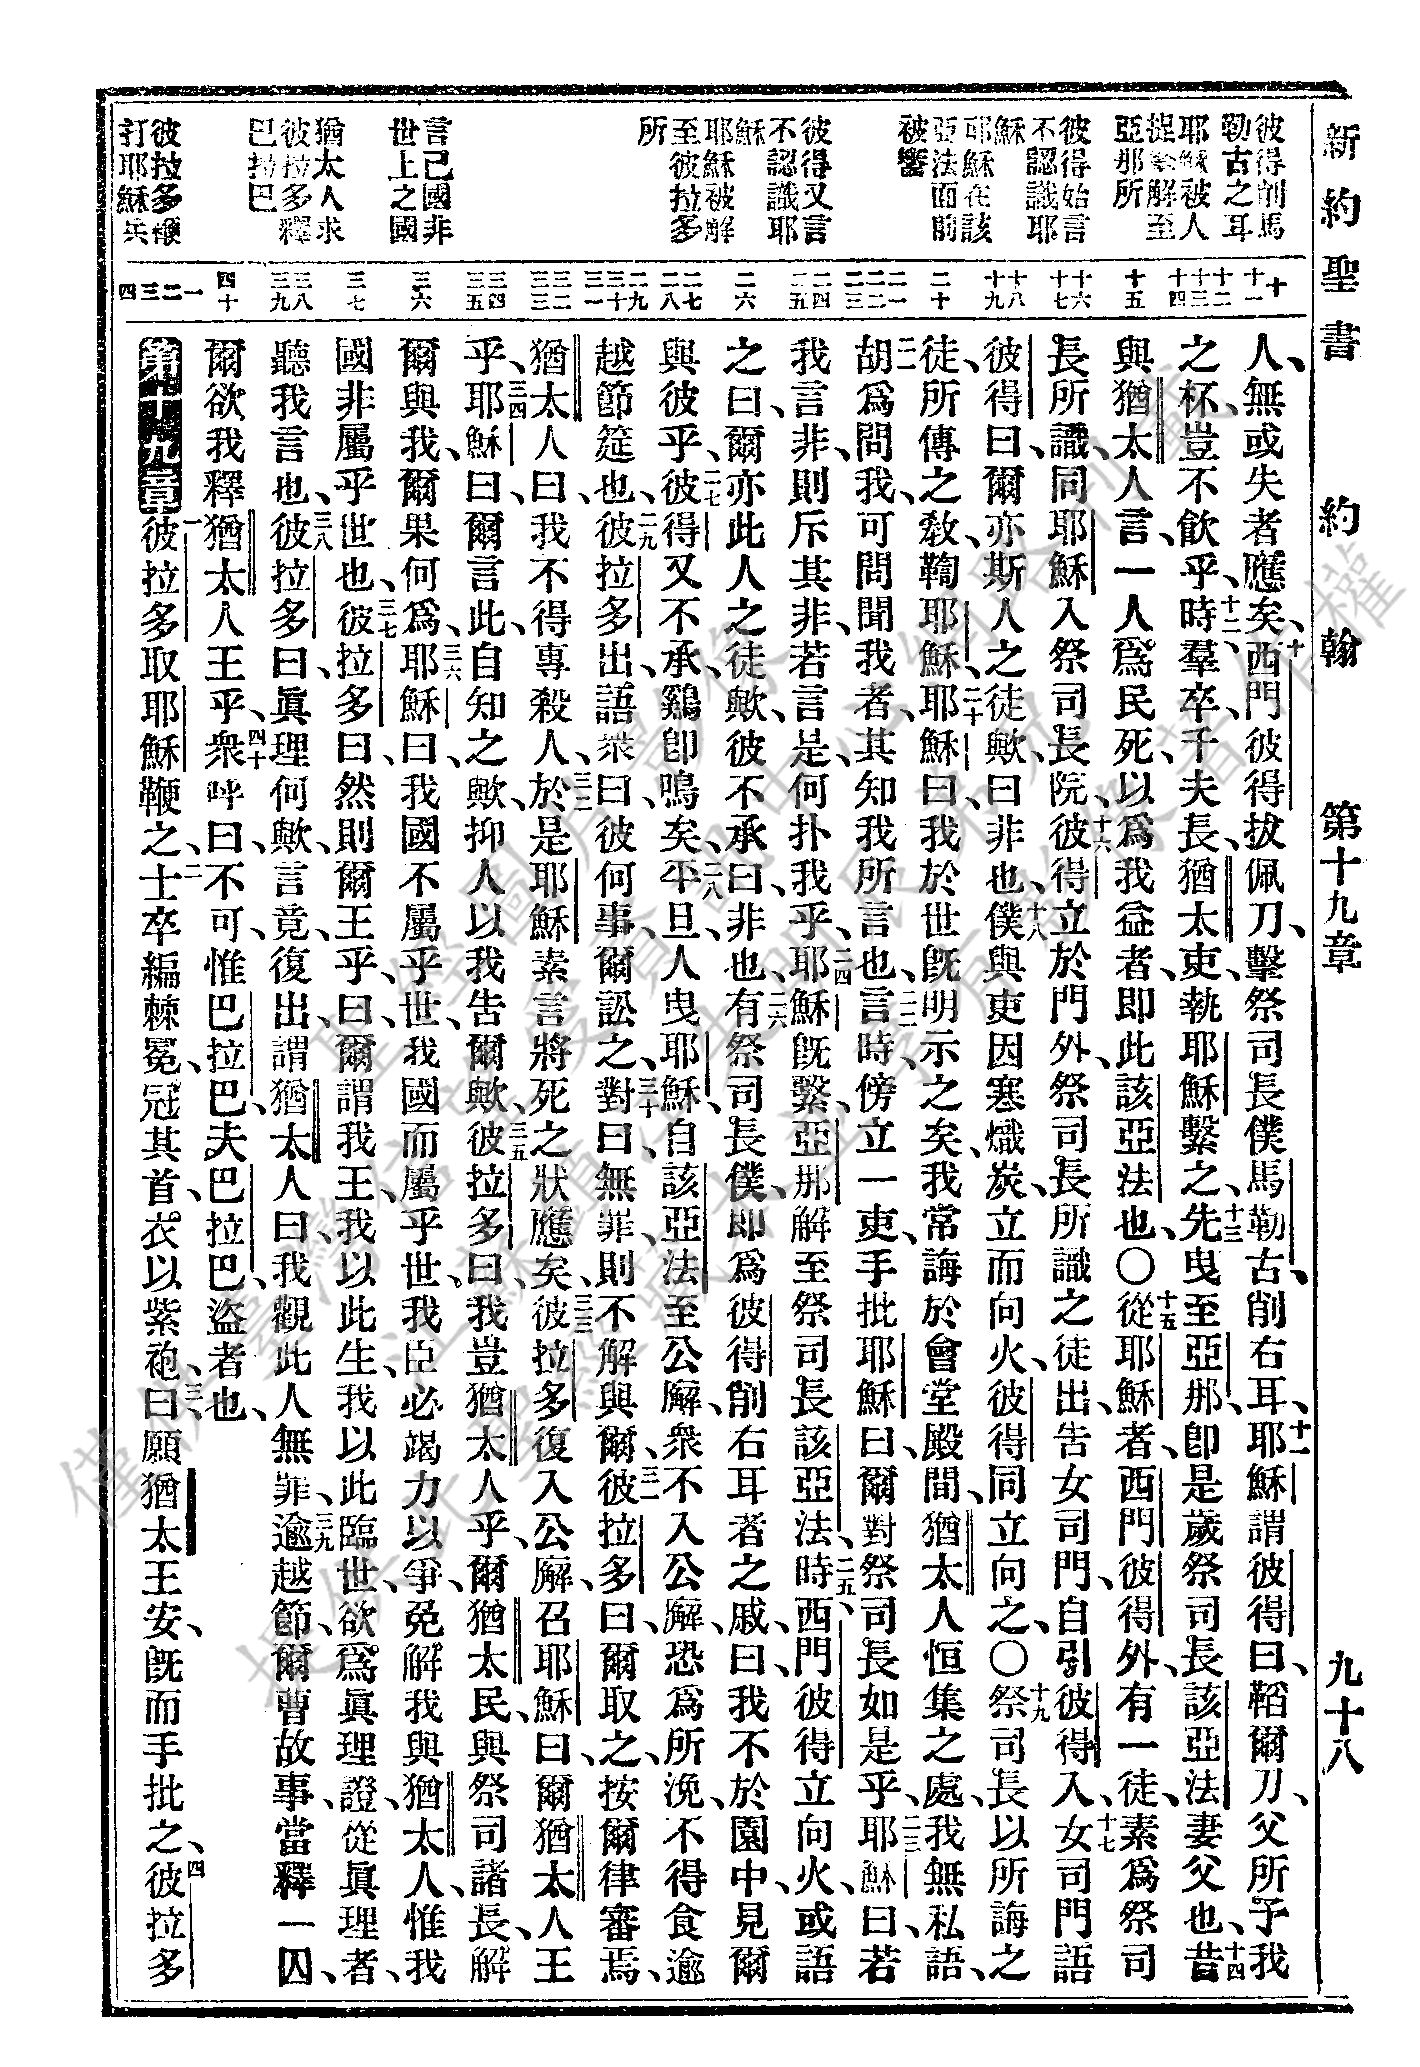 新約聖書 約翰 第十九章 九十八
彼得削馬
勒古之耳
耶穌被人
捉拏解至
亞那所
彼得始言
不認識耶
穌
耶穌在該
亞法面前
被響
彼得又言
不認識耶
穌
耶穌被解
至彼拉多
所
言己國非
世上之國
猶太人求
彼拉多釋
巴拉巴
彼拉多鞭
打耶穌兵
十
十一
十二
十三
十四
十五
十六
十七
十八
十九
二十
二一
二二
二三
二四
二五
二六
二七
二八
二九
三十
三一
三二
三三
三四
三五
三六
三七
三八
三九
四十
一
二
三
四
人、無或失者應矣、十西門彼得拔佩刀、擊祭司長僕馬勒古、削右耳、十一耶穌謂彼得曰、韜爾刀、父所予我
之杯、豈不飲乎、十二時羣卒、千夫長、猶太吏、執耶穌繫之、十三先曳至亞那、卽是歲祭司長該亞法妻父也、十四昔
與猶太人言、一人爲民死、以爲我益者、即此該亞法也○十五從耶穌者、西門彼得外、有一徒、素爲祭司
長所識、同耶穌入祭司長院、十六彼得立於門外、祭司長所識之徒出、告女司門、自引彼得入、十七女司門語
彼得曰、爾亦斯人之徒歟、曰非也、十八僕與吏因寒熾炭、立而向火、彼得同立向之、○十九祭司長以所誨之
徒、所傳之敎、鞫耶穌、二十耶穌曰、我於世旣明示之矣、我常誨於會堂殿間、猶太人恒集之處、我無私語、
二一胡爲問我、可問聞我者、其知我所言也、二二言時、傍立一吏、手批耶穌曰、爾對祭司長如是乎、二三耶穌曰、若
我言非、則斥其非、若言是、何扑我乎、二四耶穌旣繫、亞那解至祭司長該亞法、二五時西門彼得立向火、或語
之曰、爾亦此人之徒歟、彼不承曰、非也、二六有祭司長僕、即爲彼得削右耳者之戚曰、我不於園中、見爾
與彼乎、二七彼得又不承、鷄卽鳴矣、二八平旦、人曳耶穌、自該亞法至公廨、衆不入公廨、恐爲所浼、不得食逾
越節筵也、二九彼拉多出、語衆曰、彼何事、爾訟之、三十對曰、無罪、則不解與爾、三一彼拉多曰、爾取之、按爾律審焉、
猶太人曰、我不得專殺人、三二於是耶穌素言將死之狀應矣、三三彼拉多復入公廨、召耶穌曰、爾猶太人王
乎、三四耶穌曰、爾言此、自知之歟、抑人以我告爾歟、三五彼拉多曰、我豈猶太人乎、爾猶太民、與祭司諸長、解
爾與我、爾果何爲、三六耶穌曰、我國不屬乎世、我國而屬乎世、我臣必竭力以爭、免解我與猶太人、惟我
國非屬乎世也、三七彼拉多曰、然則爾王乎、曰、爾謂我王、我以此生、我以此臨世、欲爲眞理證、從眞理者、
聽我言也、三八彼拉多曰、眞理何歟、言竟、復出、謂猶太人曰、我觀此人無罪、三九逾越節、爾曹故事、當釋一囚、
爾欲我釋猶太人王乎、四十衆呼曰、不可、惟巴拉巴、夫巴拉巴、盜者也、
第十九章 一彼拉多取耶穌鞭之、二士卒編棘冕、冠其首、衣以紫袍、三曰、願猶太王安、旣而手批之、四彼拉多